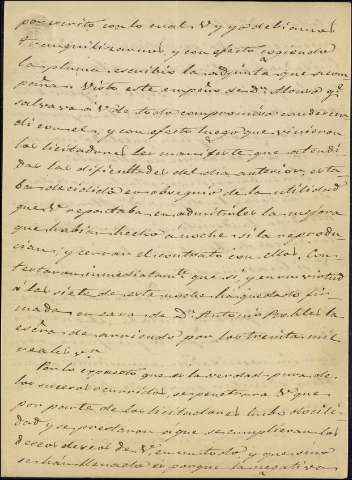 por escrito con lo cual V y yo debiamos
tranquilizarnos, y con efecto cogiendo
la pluma escribió la adjunta que acom
paña. Visto este empeño de Dn Mauro qe
salvava á V de todo compromiso condecen
di con el, y con efecto luego que vinieron
los licitadores les manifesté que atendi
das las dificultades del dia anterior, esta
ba decidido en obsequio de la utilidad
que V reportaba en admitirles la mejora
que habian hecho anoche si la reprodu
cian, y cerrar el contrato con ellos. Con
testaron inmediatamte que si, y en su virtud
á las siete de esta noche ha quedado fir
mada en casa de Dn Antonio Robles la
escra de arriendo por los treinta mil
reales vn
Por lo expuesto que es la verdad pura de
los sucesos ocurridos, se penetrara V que
por parte de los licitadores hubo docili
dad y se prestaron á que se cumplieran los
deseos de V, en un todo y que sino
se han llenado es porque la negativa